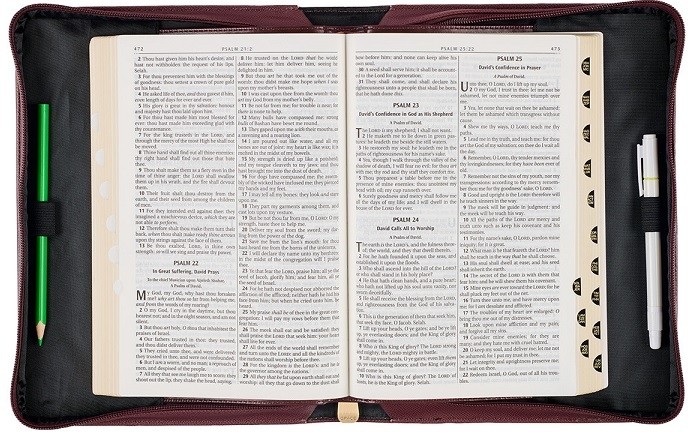 472
PSALM 21:2
2 Thou hast given him his heart's desire, and
hast not withholden the request of his lips.
Selah.
3 For thou preventest him with the blessings
of goodness: thou settest a crown of pure gold
on his head.
4 He asked life of thee, and thou gavest it him,
even length of days for ever and ever.
5 His glory is great in thy salvation: honour
and majesty hast thou laid upon him.
6 For thou hast made him most blessed for
ever: thou hast made him exceeding glad with
thy countenance.
7 For the king trusteth in the LORD, and
through the mercy of the most High he shall not
be moved.
8 Thine hand shall find out all thine enemies:
thy right hand shall find out those that hate
thee.
9 Thou shalt make them as a fiery oven in the
time of thine anger: the LORD shall swallow
them up in his wrath, and the fire shall devour
them.
10 Their fruit shalt thou destroy from the
earth, and their seed from among the children
of men.
11 For they intended evil against thee: they
imagined a mischievous device, which they are
not able to perform.
12 Therefore shalt thou make them turn their
back, when thou shalt make ready thine arrows
upon thy strings against the face of them.
13 Be thou exalted, LORD, in thine own
strength: so will we sing and praise thy power.
PSALM 22
In Great Suffering, David Prays
To the chief Musician upon Aijeleth Shahar,
A Psalm of David.
My God, my God, why hast thou forsaken
me? why art thou so far from helping me,
and from the words of my roaring?
2 O my God, I cry in the daytime, but thou
hearest not; and in the night season, and am not
silent.
3 But thou art holy, O thou that inhabitest the
praises of Israel.
4 Our fathers trusted in thee: they trusted,
and thou didst deliver them.
5 They cried unto thee, and were delivered:
they trusted in thee, and were not confounded.
6 But I am a worm, and no man; a reproach of
men, and despised of the people.
7 All they that see me laugh me to scorn: they
shoot out the lip, they shake the head, saying,
8 He trusted on the LORD that he would
deliver him: let him deliver him, seeing he
delighted in him.
9 But thou art he that took me out of the
womb: thou didst make me hope when I was
upon my mother's breasts.
10 I was cast upon thee from the womb: thou
art my God from my mother's belly.
11 Be not far from me; for trouble is near; for
there is none to help.
12 Many bulls have compassed me: strong
bulls of Bashan have beset me round.
13 They gaped upon me with their mouths, as
a ravening and a roaring lion.
14 I am poured out like water, and all my
bones are out of joint: my heart is like wax; it is
melted in the midst of my bowels.
15 My strength is dried up like a potsherd;
and my tongue cleaveth to my jaws; and thou
hast brought me into the dust of death.
16 For dogs have compassed me: the assem-
bly of the wicked have inclosed me: they pierced
my hands and my feet.
17 I may tell all my bones: they look and stare
upon me.
18 They part my garments among them, and
cast lots upon my vesture.
19 But be not thou far from me, O LORD: O my
strength, haste thee to help me.
20 Deliver my soul from the sword; my dar-
ling from the power of the dog.
21 Save me from the lion's mouth: for thou
hast heard me from the horns of the unicorns.
22 I will declare thy name unto my brethren:
in the midst of the congregation will I praise
thee.
23 Ye that fear the LORD, praise him; all ye the
seed of Jacob, glorify him; and fear him, all ye
the seed of Israel.
24 For he hath not despised nor abhorred the
affliction of the afflicted; neither hath he hid his
face from him; but when he cried unto him, he
heard.
25 My praise shall be of thee in the great con-
gregation: I will pay my vows before them that
fear him.
26 The meek shall eat and be satisfied: they
shall praise the LORD that seek him: your heart
shall live for ever.
27 All the ends of the world shall remember
and turn unto the LORD: and all the kindreds of
the nations shall worship before thee.
28 For the kingdom is the LORD's: and he is
the governor among the nations.
29 All they that be fat upon earth shall eat and
worship: all they that go down to the dust shall
PSALM 25:22
473
bow before him: and none can keep alive his
own soul.
30 A seed shall serve him; it shall be account-
ed to the Lord for a generation.
31 They shall come, and shall declare his
righteousness unto a people that shall be born,
that he hath done this.
PSALM 23
David's Confidence in God as His Shepherd
A Psalm of David.
The LORD is my shepherd; I shall not want.
2 He maketh me to lie down in green pas-
tures: he leadeth me beside the still waters.
3 He restoreth my soul: he leadeth me in the
paths of righteousness for his name's sake.
4 Yea, though I walk through the valley of the
shadow of death, I will fear no evil: for thou art
with me; thy rod and thy staff they comfort me.
5 Thou preparest a table before me in the
presence of mine enemies: thou anointest my
head with oil; my cup runneth over.
6 Surely goodness and mercy shall follow me
all the days of my life: and I will dwell in the
house of the LORD for ever.
PSALM 24
David Calls All to Worship
A Psalm of David.
The earth is the LORD's, and the fulness there-
of; the world, and they that dwell therein.
2 For he hath founded it upon the seas, and
established it upon the floods.
3 Who shall ascend into the hill of the LORD?
or who shall stand in his holy place?
4 He that hath clean hands, and a pure heart;
who hath not lifted up his soul unto vanity, nor
sworn deceitfully.
5 He shall receive the blessing from the LORD,
and righteousness from the God of his salva-
tion.
6 This is the generation of them that seek him,
that seek thy face, O Jacob. Selah.
7 Lift up your heads, O ye gates; and be ye lift
up, ye everlasting doors; and the King of glory
shall come in.
8 Who is this King of glory? The LORD strong
and mighty, the LORD mighty in battle.
9 Lift up your heads, O ye gates; even lift them
up, ye everlasting doors; and the King of glory
shall come in.
10 Who is this King of glory? The LORD of
hosts, he is the King of glory. Selah.
PSALM 25
David's Confidence in Prayer
A Psalm of David.
Unto thee, O LORD, do I lift up my soul.
2 O my God, I trust in thee: let me not be
ashamed, let not mine enemies triumph over
me.
3 Yea, let none that wait on thee be ashamed:
let them be ashamed which transgress without
cause.
4 Shew me thy ways, O LORD; teach me thy
paths.
5 Lead me in thy truth, and teach me: for thou
art the God of my salvation; on thee do I wait all
the day.
6 Remember, O LORD, thy tender mercies and
thy lovingkindnesses; for they have been ever
of old.
7 Remember not the sins of my youth, nor my
transgressions: according to thy mercy remem-
ber thou me for thy goodness' sake, O LORD.
8 Good and upright is the LORD: therefore will
he teach sinners in the way.
9 The meek will he guide in judgment: and
the meek will he teach his way.
10 All the paths of the LORD are mercy and
truth unto such as keep his covenant and his
testimonies.
11 For thy name's sake, O LORD, pardon mine
iniquity; for it is great.
12 What man is he that feareth the LORD? him
shall he teach in the way that he shall choose.
13 His soul shall dwell at ease; and his seed
shall inherit the earth.
14 The secret of the LORD is with them that
fear him; and he will shew them his covenant.
15 Mine eyes are ever toward the LORD; for he
shall pluck my feet out of the net.
16 Turn thee unto me, and have mercy upon
me; for I am desolate and afflicted.
17 The troubles of my heart are enlarged: O
bring thou me out of my distresses.
18 Look upon mine affliction and my pain;
and forgive all my sins.
19 Consider mine enemies; for they are
many; and they hate me with cruel hatred.
20 O keep my soul, and deliver me: let me not
be ashamed; for I put my trust in thee.
21 Let integrity and uprightness preserve me;
for I wait on thee.
22 Redeem Israel, O God, out of all his trou-
bles.